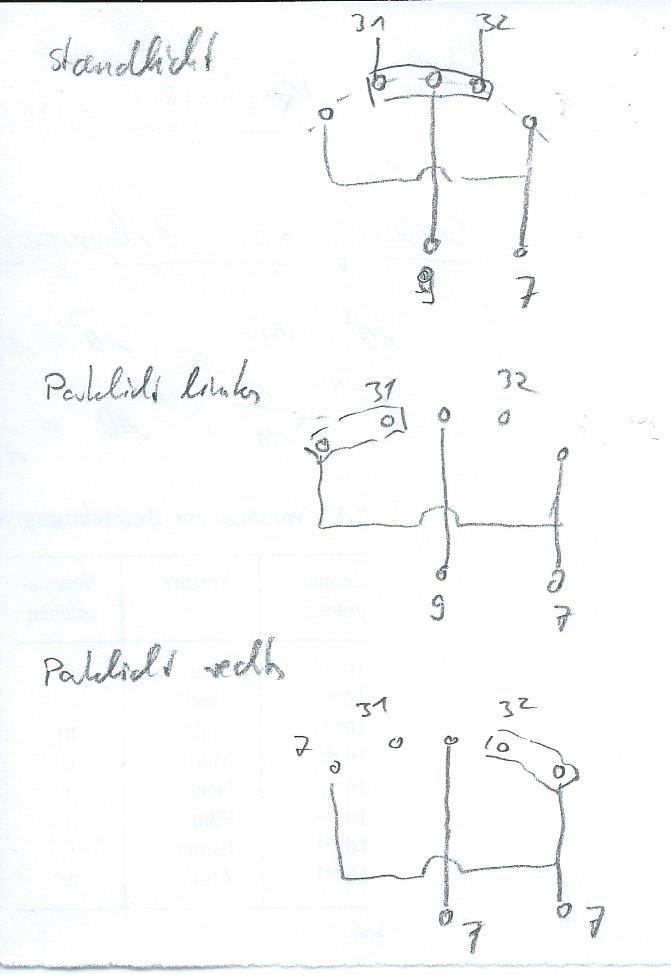 31 32
Standlicht
9 7
Parklicht links 31 32
9 7
Parklicht rechts
31 32
7
7 7